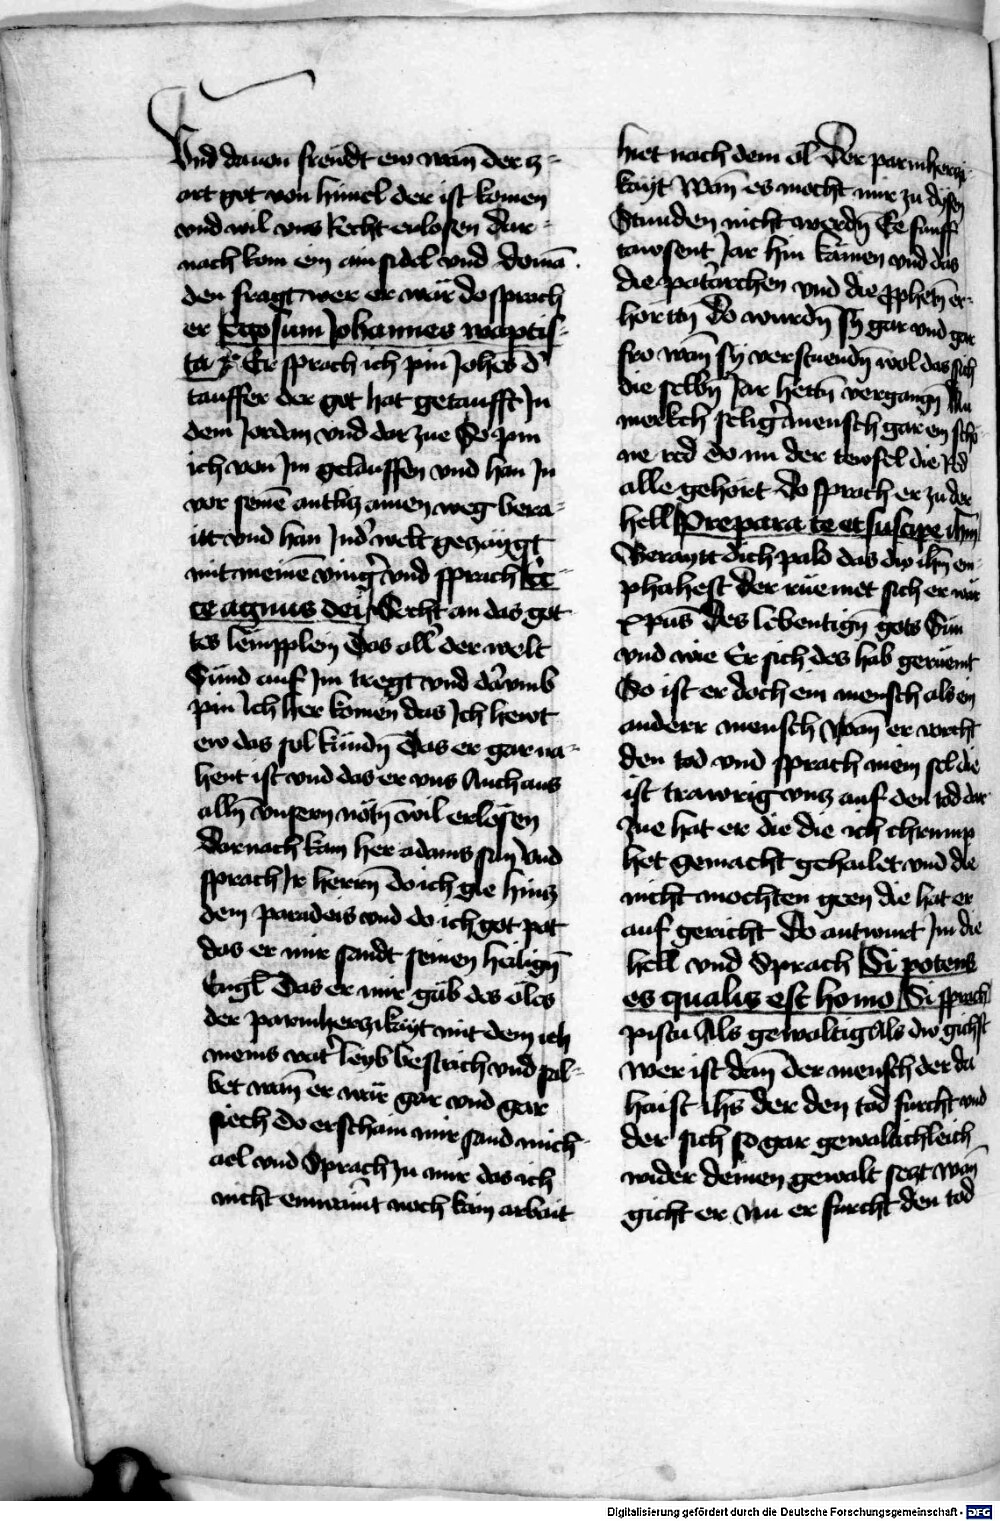 Vnd dauon freudt ew wan̄ der z=
art got von himel der ist komen
vnd wil vns Recht erlosen Dar=
nach kom ein ainsidel vnd
den fragt wer er wär do sprach
er Ego sum Johannes waptis=
ta Er sprach ich pin Johēs d'
tauffer der got hat getaufft Jn
dem Jordan vnd dar zue So pin
ich von Jm gelauffen vnd han Jn
vor seinē antlitz ainen weg bera=
itt vnd han Jn d' welt gezaigt
mit meinē ving' vnd sprach Ec=
ce agnus dei Secht an das got
tes lempplein Das all' der welt
Sünd auf Jm tregt vnd darumb
pin Ich her komen das Ich hewt
ew das sol kündn̄ Das er gar na=
hent ist vnd das er vns Auch aus
alln̄ vnsern nötn̄ wil erlösen
Darnach kam her adams sun vnd
sprach Jr herrn̄ do ich gie hintz
dem paradeis vnd do ich got pat
das er mir sandt seinen heilign̄
Engl Das er mir gäb des öles
der parmherczikayt mit dem ich
meins vat' leyb bestrich vnd sal=
bet wan̄ er wär gar vnd gar
siech do erschain mir sand mich=
ael vnd Sprach zu mir das ich
nicht noch kain arbait
hiet nach dem öl Der parmherczi=
kayt Wan̄ es mocht mir zu disen
Stunden nicht werdn̄ Ee funff
tawsent Jar hin kämen vnd das
die patarchen vnd die ꝓphetn̄ er=
hörttn̄ Do wurdn̄ sy gar vnd gar
fro wan̄ sy verstuendn̄ wol das sich
die selbn̄ Jar hettn̄ vergangn̄ Nu
merkch selig' mensch gar ein schö=
ne red do nu der tewfel die red
alle gehört Do sprach er zu der
hell Prepara te et suscipe ihm̄
Beraytt dich pald das dw ihm̄ en=
phahest der rüemet sich er wär
xp̄us Des lebentign̄ gots Sun
vnd wie Er sich des hab gerüemt
So ist er doch ein mensch als ein
anderr mensch Wan̄ er vorcht
den tod vnd sprach mein sel die
ist trawrig vntz auf den tod dar
zue hat er die die ich chrump
het gemacht gehailet vnd die
nicht mochten geen die hat er
auf gericht Do antwurt Jm die
hell vnd Sprach Si potens
es qualis est homo Si sprach
pistu Als gewaltig Als dw gichst
wer ist dan̄ der mensch der da
haist ihs̄ der den tod furcht vnd
der sich so gar gewaltichleich
wider deinen gewalt seczt wan̄
gicht er Nu er furcht den tod
Digitalisierung gefördert durch die Deutsche Forschungsgemeinschaft - DFG